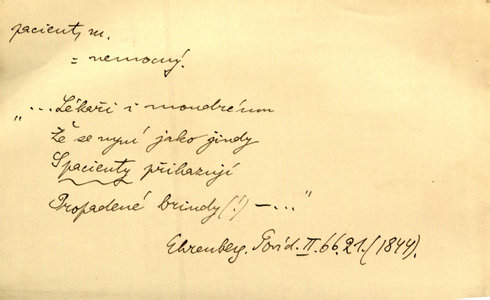 pacient, m.
= nemocný.
"...Lékaři i moudrému
Že se nyní jako jindy
S pacienty přihazují
Propadené brindy (!) – ..."
Ehrenberg. Povíd. II. 66. 21. (1844).